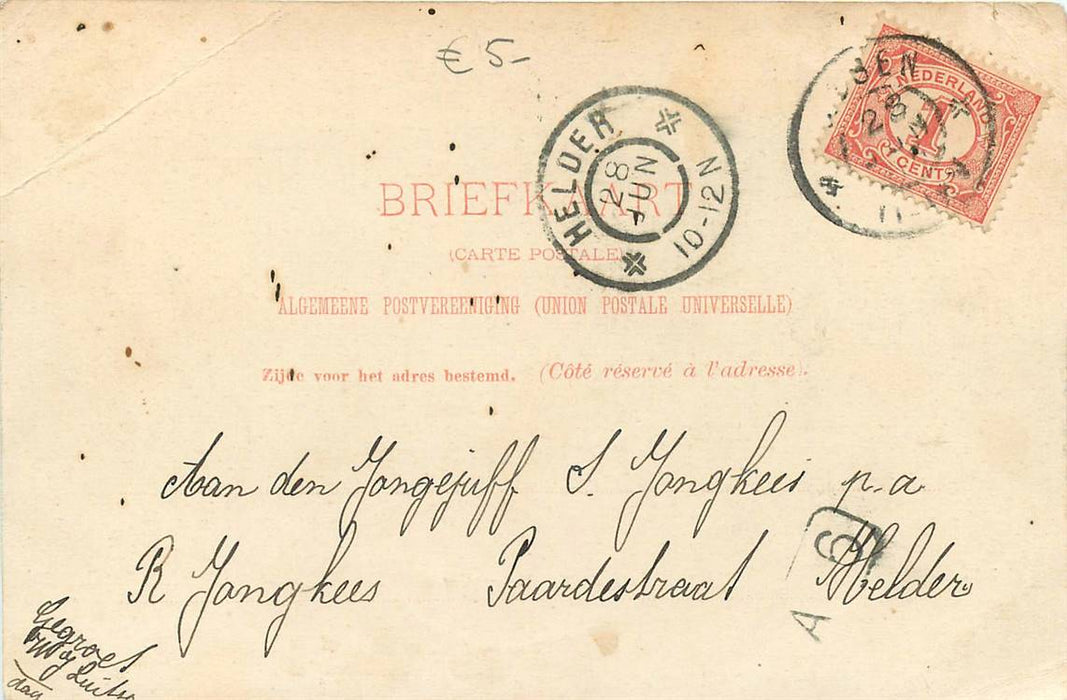 € 5-
NEDERLAND
1
1 CENT
HELDER
28
JUN
10-12N
BRIEFKAART
(CARTE POSTALE)
ALGEMEENE POSTVEREENIGING (UNION POSTALE UNIVERSELLE)
Zijde voor het adres bestemd. (Côté réservé à l'adresse).
Aan den Jongejuff S. Jongkees p.a
R Jongkees Paardestraat Helder
A 6
Gegroet